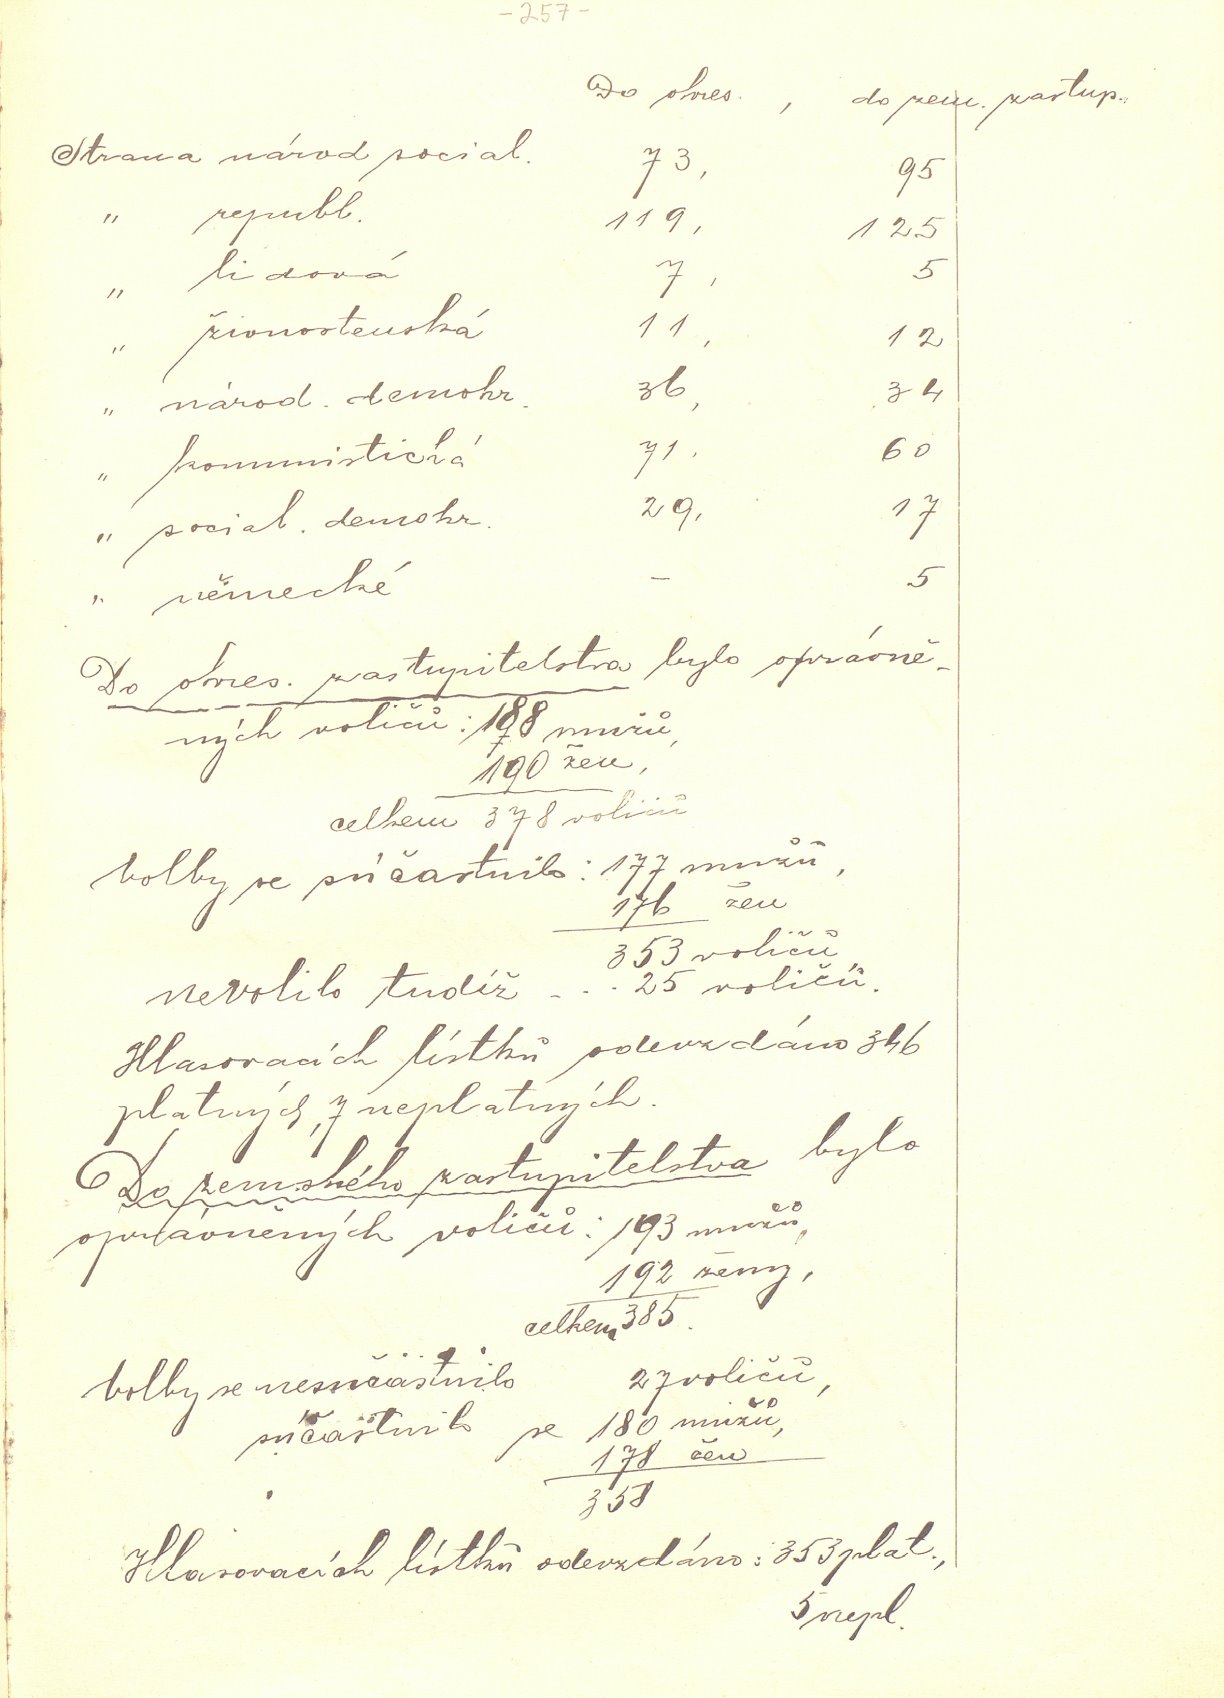 -257-
Do okres. , do zem. zastup.
Strana národ social. 73, 95
" republ. 119, 125
" lidová 7, 5
" živnostenská 11, 12
" národ. demokr. 36, 34
" kommunistická 71, 60
" social. demokr. 29, 17
" německé – 5
Do okres. zastupitelstva bylo oprávně-
ných voličů: 188 mužů,
190 žen,
celkem 378 voličů
Volby se súčastnilo: 177 mužů,
176 žen
353 voličů
nevolilo tudíž - . . 25 voličů.
Hlasovacích lístků odevzdáno 346
platných, 7 neplatných.
Do zemského zastupitelstva bylo
oprávněných voličů: 193 mužů,
192 ženy,
celkem 385.
Volby se nesúčastnilo 27 voličů,
súčastnilo se 180 mužů,
178 žen
358
Hlasovacích lístků odevzdáno: 353 plat.,
5 nepl.